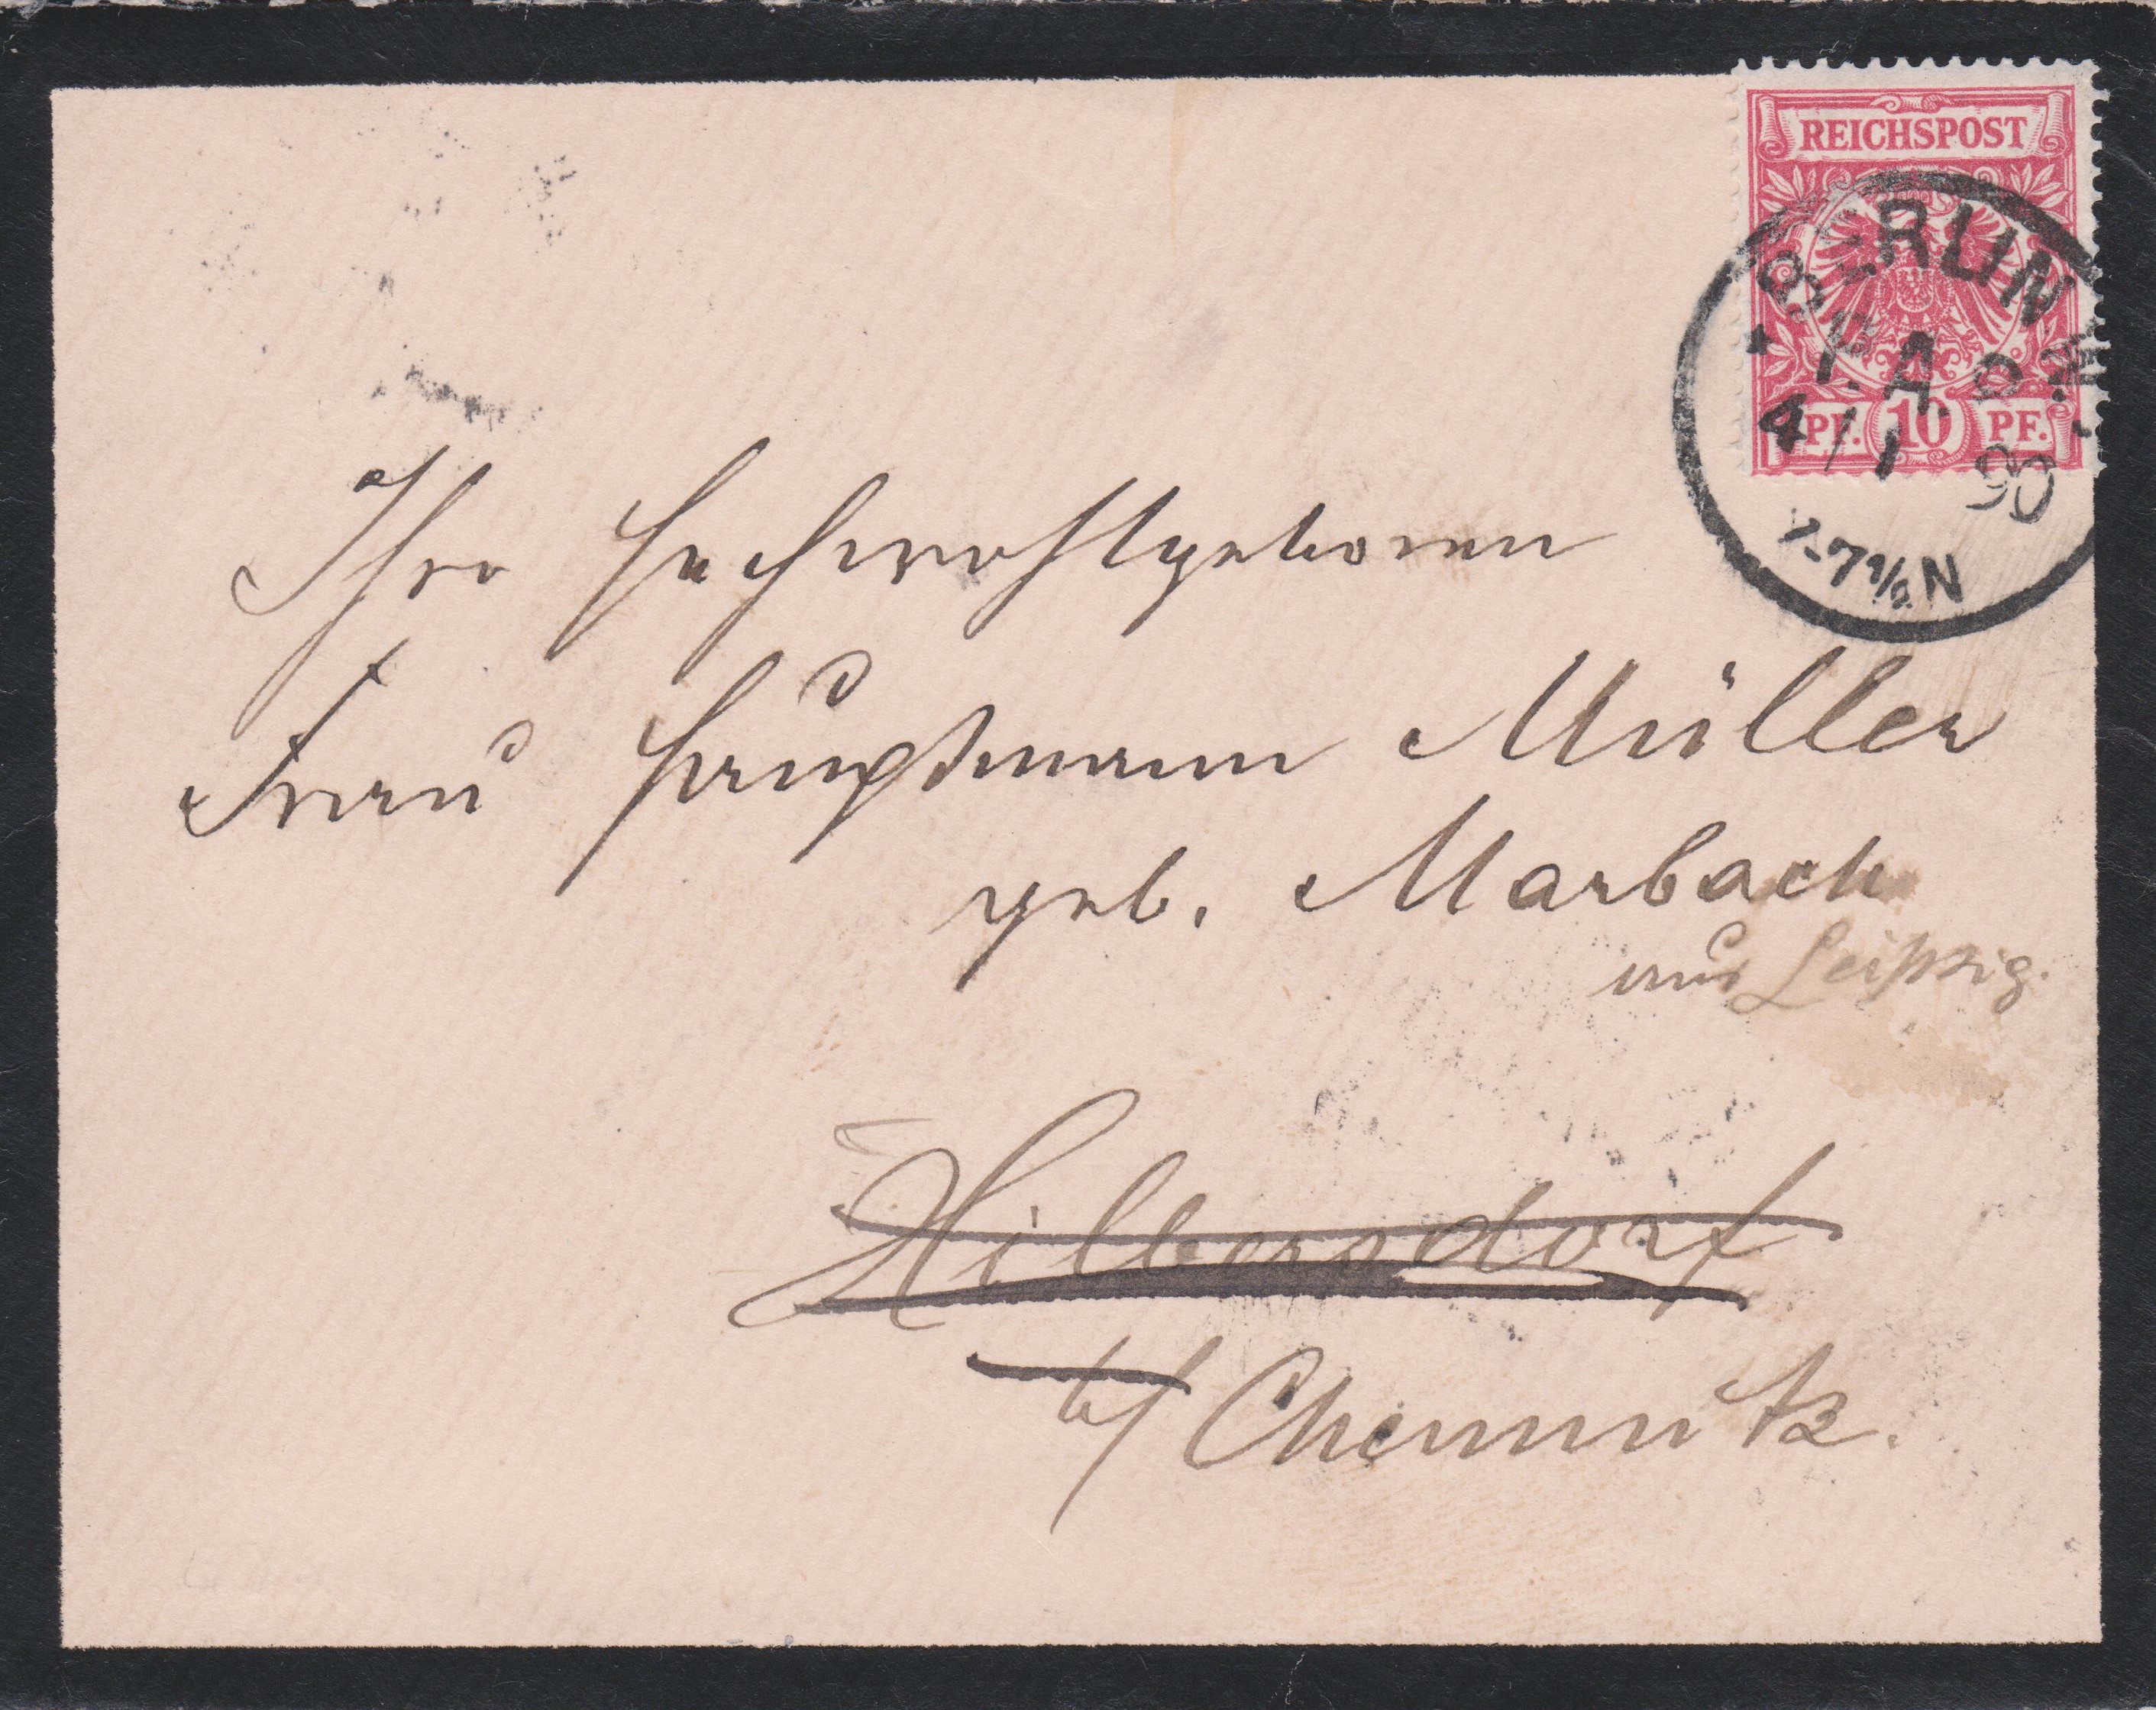 REICHSPOST
PF. 10 PF.
BERLIN W.
4/1 90
7-7½N
Ihro Hochwohlgeboren
Frau Hauptmann Müller
geb. Marbach
aus Leipzig.
Hilbersdorf
b/ Chemnitz.